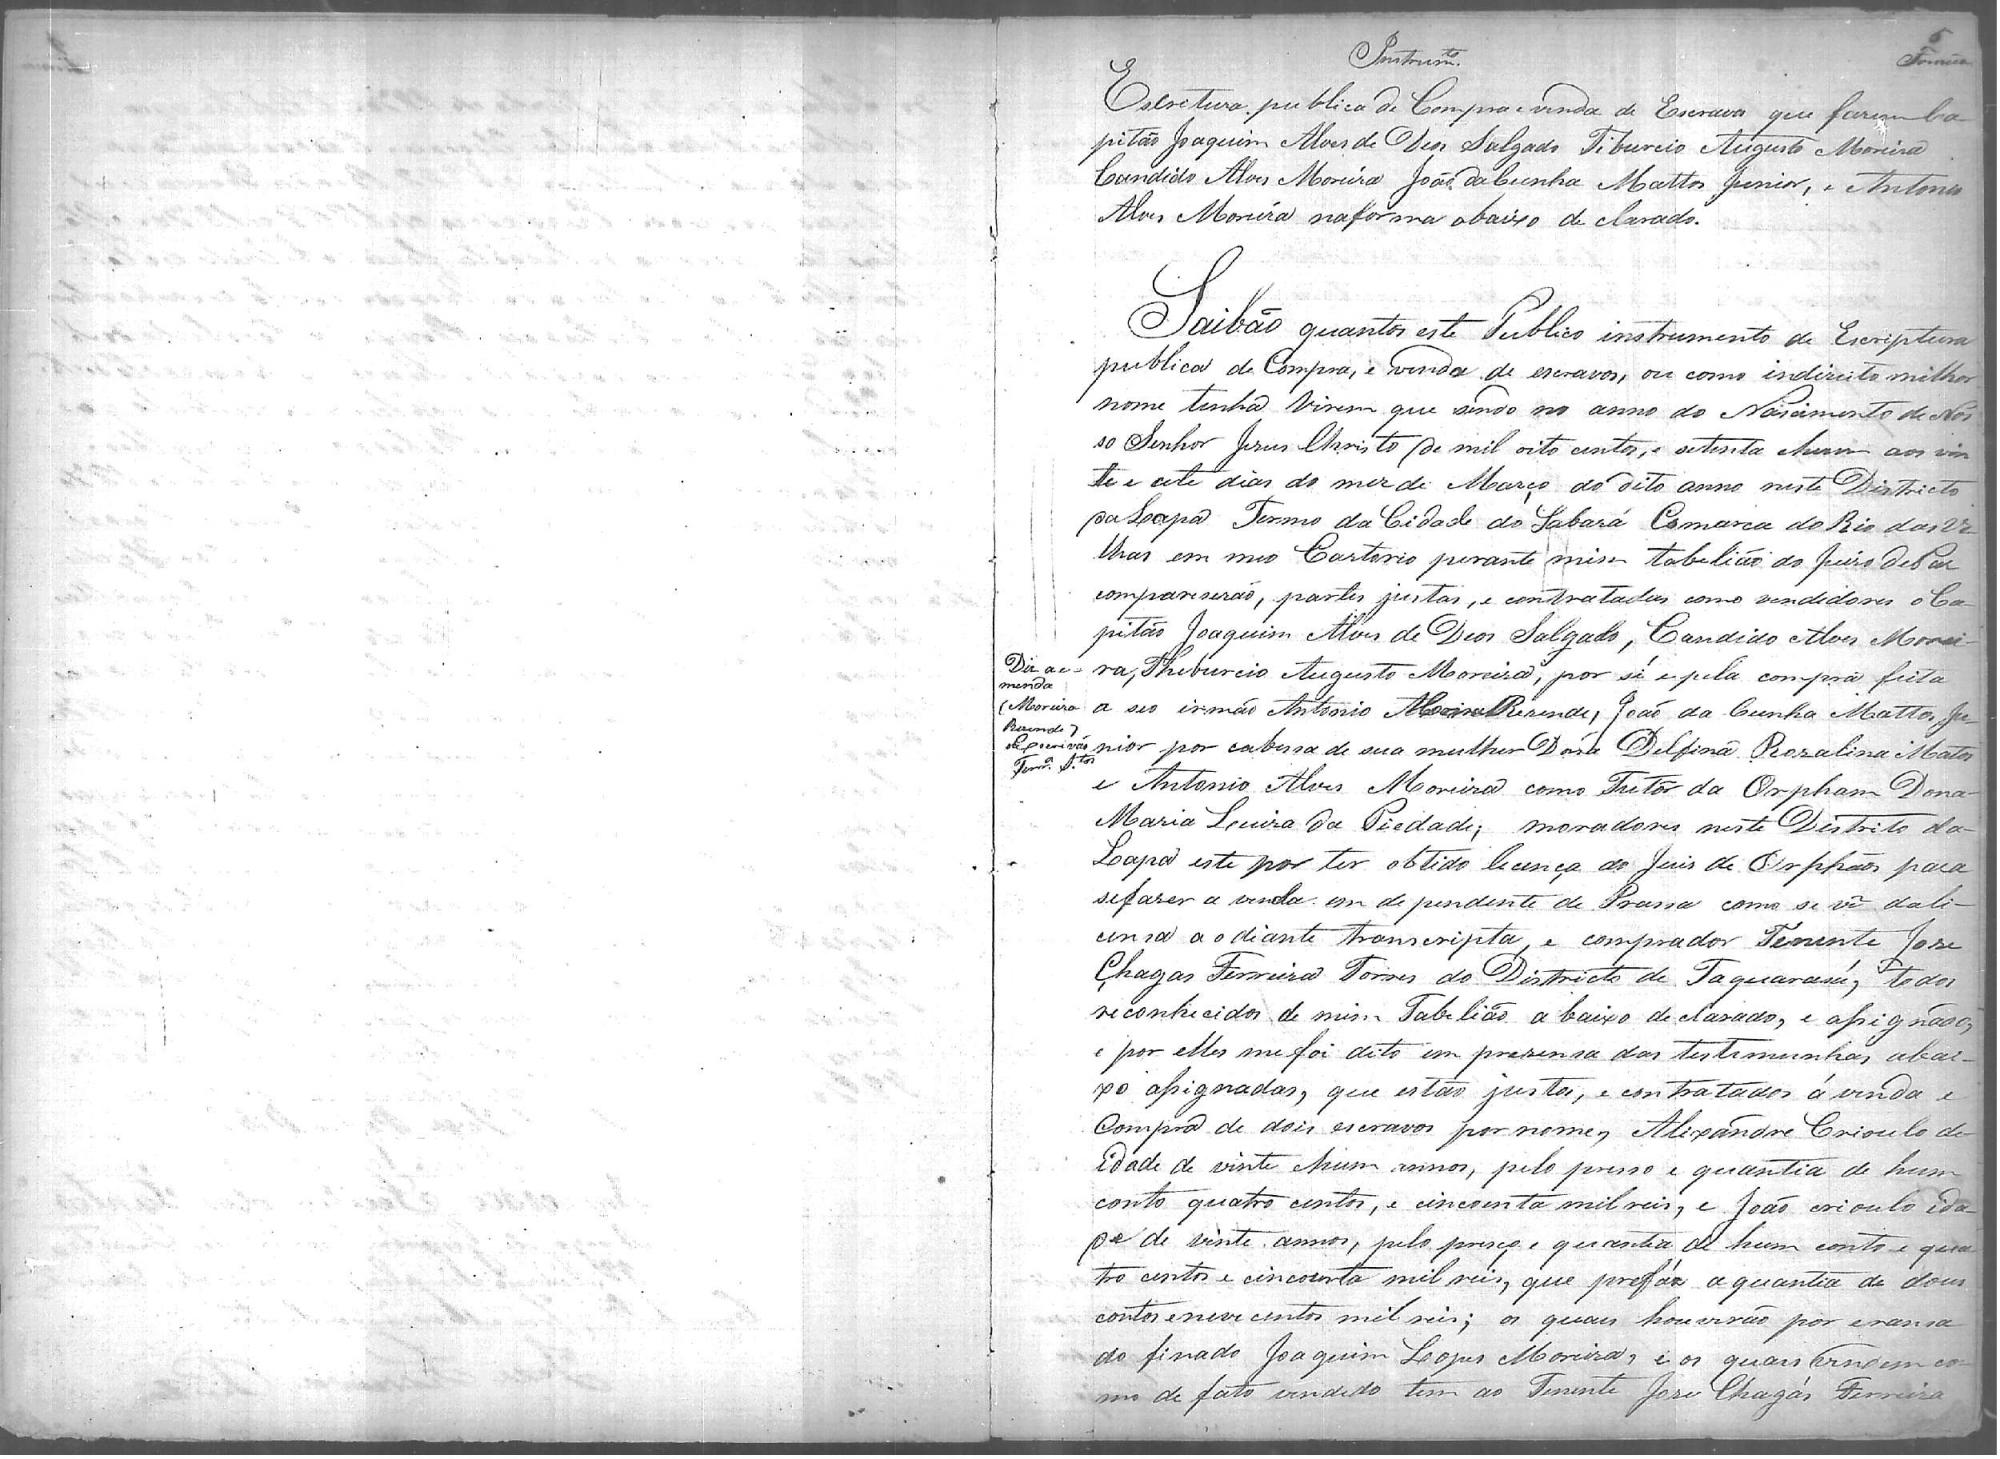 5
Instrum.to
Escretura publica de Compra e venda de Escravos que fazem Ca-
pitão Joaquim Alves de Deos Salgado Tiburcio Augusto Moreira
Candido Alves Moreira João da Cunha Mattos Junior, e Antonio
Alves Moreira naforma abaixo de clarado.
Saibão quantos este Publico instrumento de Escriptura
publica de Compra, e venda de escravos, ou como indireito milhor
nome tenha virem que sendo no anno do Nascimento de Nos
so Senhor Jezus Christo de mil oito centos, e setenta ehum aos vin
te e cete dias do mez de Março do dito anno neste Districto
da Lapa Termo da Cidade do Sabará Comarca do Rio das Ve
lhas em meo Cartorio perante mim tabelião do Juizo de Paz
compareserão, partes justas, e contratadas como vendidores o Ca-
pitão Joaquim Alves de Deos Salgado, Candido Alves Morei-
ra, Theburcio Augusto Moreira, por sí e pela compra feita
a seo irmão Antonio Rezende, João da Cunha Mattos Ju-
nior por cabessa de sua mulher Dona Delfina Rozalina Matos
e Antonio Alves Moreira como Tutôr da Orpham Dona
Maria Luiza da Piedade; moradores neste Distrito da
Lapa este por ter obtido licença do Juis de Orphãos para
sefazer a venda em de pendente de Prassa como se vê dali-
censa a o diante transcripta, e comprador Tenente Joze
Chagas Ferreira Torres do Districto de Taquarasú, todos
reconhecidos de mim Tabelião a baixo de clarado, e assignado,
e por elles me foi dito em prezensa das testemunhas abai-
xo assignadas, que estão justos, e contratados á venda e
Compra de dois escravos por nome, Alixandre Crioulo de
idade de vinte ehum annos, pelo presso e quantia de hum
conto quatro centos, e cincoenta mil reis, e João crioulo ida-
de de vinte annos, pelo preço e quantia de hum conto e qua
tro centos e cincoenta mil reis, que prefáz a quantia de dous
contos e nove centos mil reis; os quais houverão por eransa
do finado Joaquim Lopes Moreira, e os quais vendem co-
mo de fato vendido tem ao Tenente Joze Chagas Ferreira
Diz a e-
menda
(Moreira
Rezende)
o Escrivão
Ferr.a S.tos